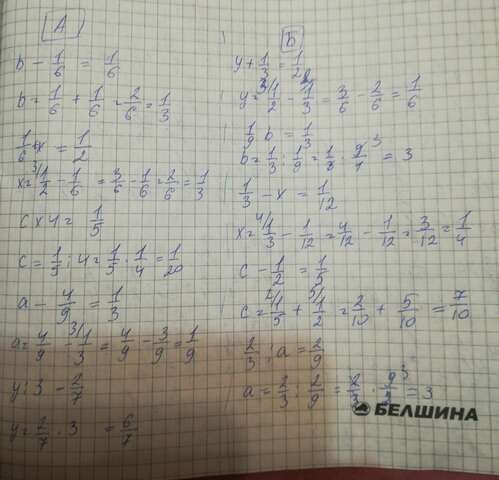 А
b - 1/6 = 1/6
b = 1/6 + 1/6 = 2/6 = 1/3
1/6 + x = 1/2
x = 1/2 - 1/6 = 3/6 - 1/6 = 2/6 = 1/3
c × 4 = 1/5
c = 1/5 : 4 = 1/5 · 1/4 = 1/20
a - 4/9 = 1/3
a = 4/9 - 1/3 = 4/9 - 3/9 = 1/9
y : 3 - 2/7
y = 2/7 · 3 = 6/7
Б
y + 1/3 = 1/2
y = 1/2 - 1/3 = 3/6 - 2/6 = 1/6
1/9 b = 1/3
b = 1/3 : 1/9 = 1/3 · 9/1 = 3
1/3 - x = 1/12
x = 1/3 - 1/12 = 4/12 - 1/12 = 3/12 = 1/4
c - 1/2 = 1/5
c = 1/5 + 1/2 = 2/10 + 5/10 = 7/10
2/3 : a = 2/9
a = 2/3 : 2/9 = 2/3 · 9/2 = 3
БЕЛШИНА